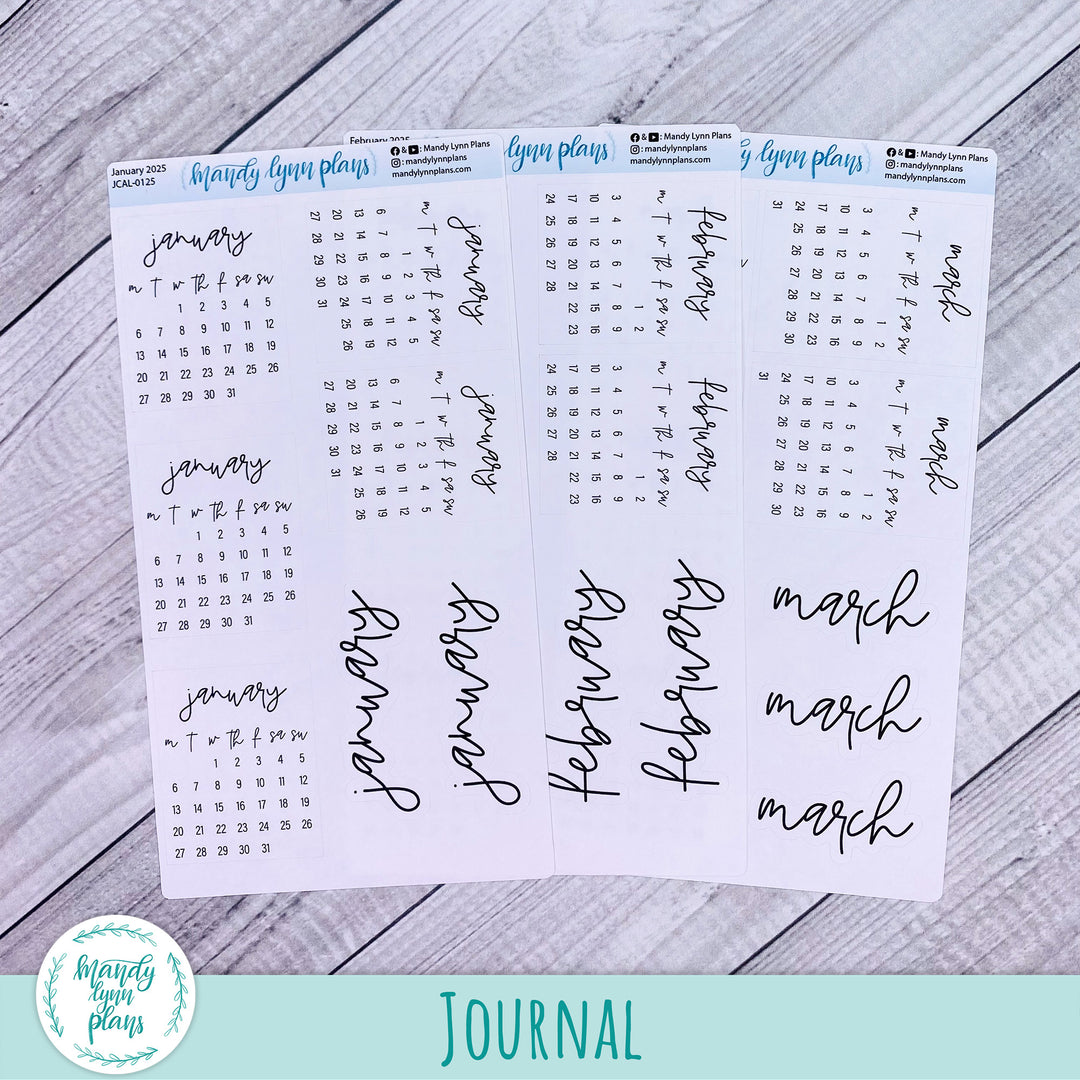 January 2025
JCAL-0125
mandy lynn plans
& : Mandy Lynn Plans
: mandylynnplans
mandylynnplans.com
january
m T w th f sa su
1 2 3 4 5
6 7 8 9 10 11 12
13 14 15 16 17 18 19
20 21 22 23 24 25 26
27 28 29 30 31
january
m T w th f sa su
1 2 3 4 5
6 7 8 9 10 11 12
13 14 15 16 17 18 19
20 21 22 23 24 25 26
27 28 29 30 31
january
m T w th f sa su
1 2 3 4 5
6 7 8 9 10 11 12
13 14 15 16 17 18 19
20 21 22 23 24 25 26
27 28 29 30 31
january
m T w th f sa su
1 2 3 4 5
6 7 8 9 10 11 12
13 14 15 16 17 18 19
20 21 22 23 24 25 26
27 28 29 30 31
january
m T w th f sa su
1 2 3 4 5
6 7 8 9 10 11 12
13 14 15 16 17 18 19
20 21 22 23 24 25 26
27 28 29 30 31
january
january
February 2025
lynn plans
& : Mandy Lynn Plans
: mandylynnplans
mandylynnplans.com
february
m T w th f sa su
1 2
3 4 5 6 7 8 9
10 11 12 13 14 15 16
17 18 19 20 21 22 23
24 25 26 27 28
february
m T w th f sa su
1 2
3 4 5 6 7 8 9
10 11 12 13 14 15 16
17 18 19 20 21 22 23
24 25 26 27 28
february
february
y lynn plans
& : Mandy Lynn Plans
: mandylynnplans
mandylynnplans.com
march
m T w th f sa su
1 2
3 4 5 6 7 8 9
10 11 12 13 14 15 16
17 18 19 20 21 22 23
24 25 26 27 28 29 30
31
march
m T w th f sa su
1 2
3 4 5 6 7 8 9
10 11 12 13 14 15 16
17 18 19 20 21 22 23
24 25 26 27 28 29 30
31
march
march
march
mandy
lynn
plans
Journal